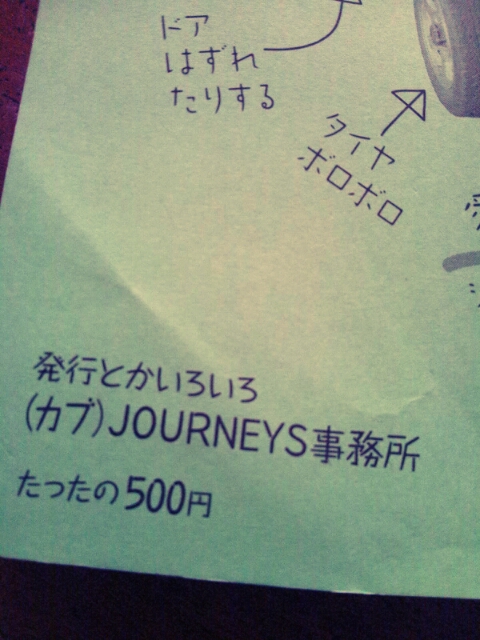 ドア
はずれ
たりする
タイヤ
ボロボロ
発行とかいろいろ
(カブ)JOURNEYS事務所
たったの500円